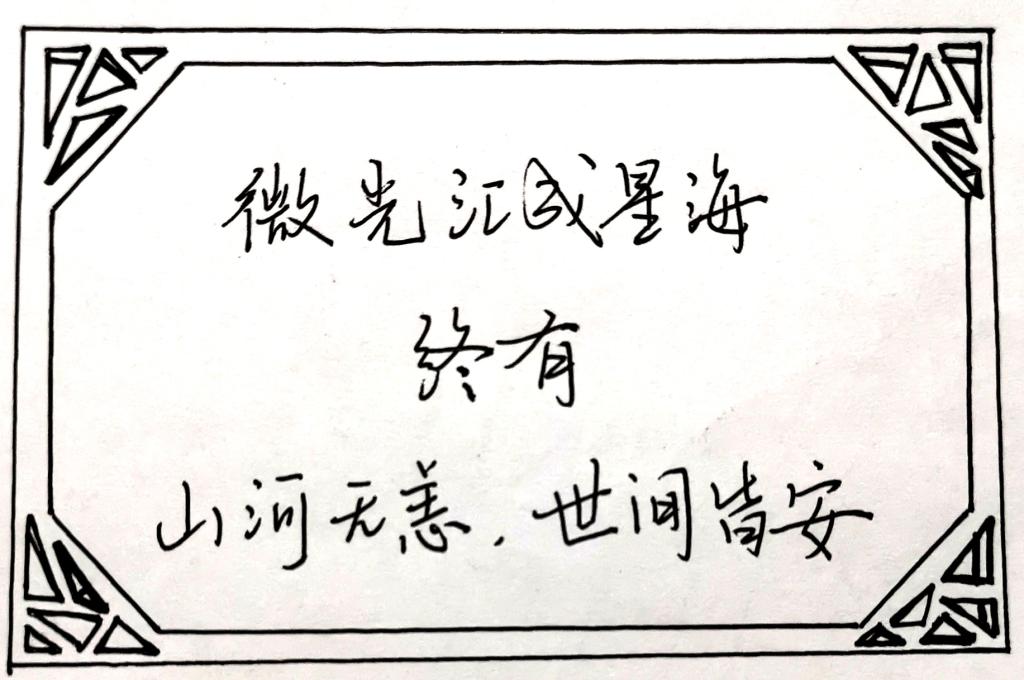 微光汇成星海
终有
山河无恙，世间皆安